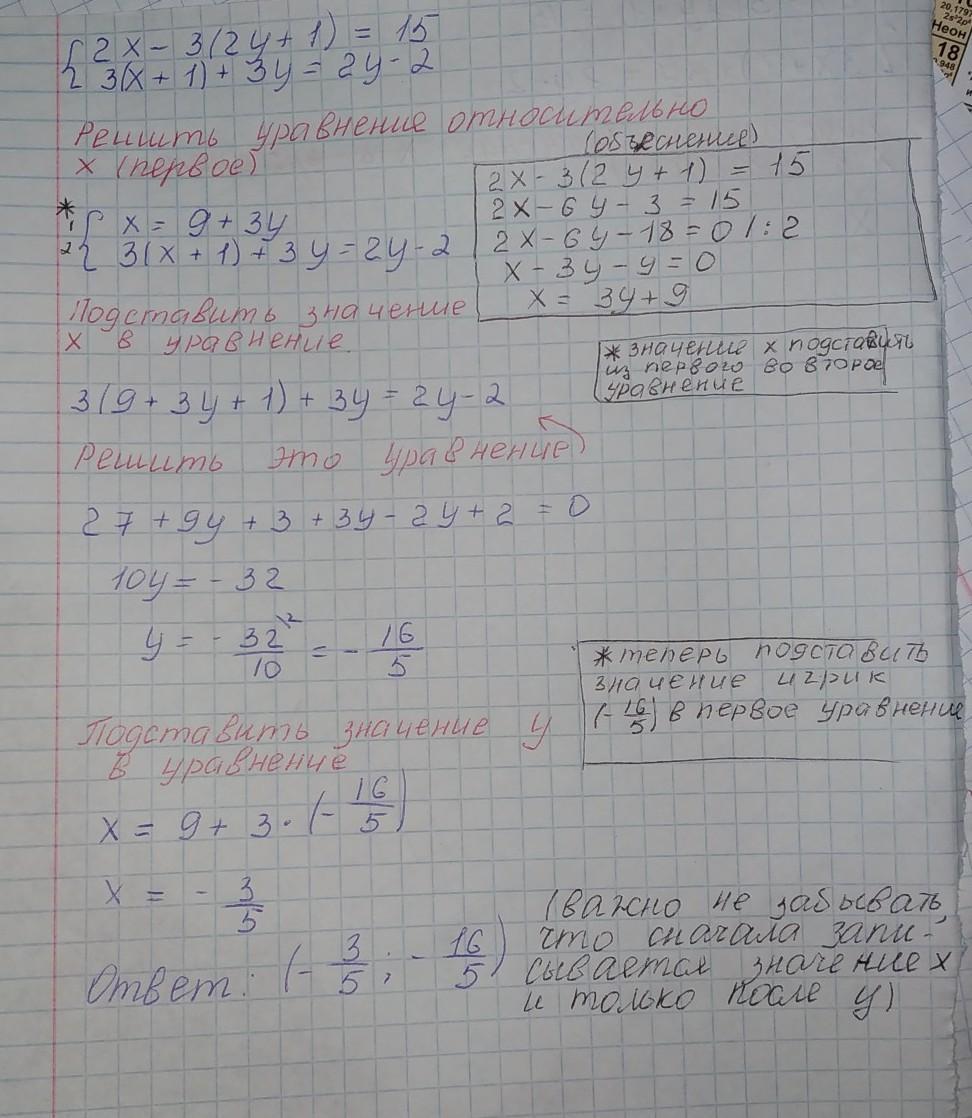 { 2x - 3(2y + 1) = 15
3(x + 1) + 3y = 2y - 2
Решить уравнение относительно
x (первое)
(объеснение)
2x - 3(2y + 1) = 15
2x - 6y - 3 = 15
2x - 6y - 18 = 0 / : 2
x - 3y - y = 0
x = 3y + 9
*
1 { x = 9 + 3y
2 3(x + 1) + 3y = 2y - 2
Подставить значение
x в уравнение
* значение x подставить
из первого во второе
уравнение
3(9 + 3y + 1) + 3y = 2y - 2
Решить это уравнение)
27 + 9y + 3 + 3y - 2y + 2 = 0
10y = - 32
y = - 32\2/10 = - 16/5
* теперь подставить
значение игрик
(- 16/5) в первое уравнение
Подставить значение y
в уравнение
x = 9 + 3 · (- 16/5)
x = - 3/5
Ответ: (- 3/5 ; - 16/5)
(важно не забывать,
что сначала запи-
сывается значение x
и только после y)
20,1797
2s²2p⁶
Неон
18